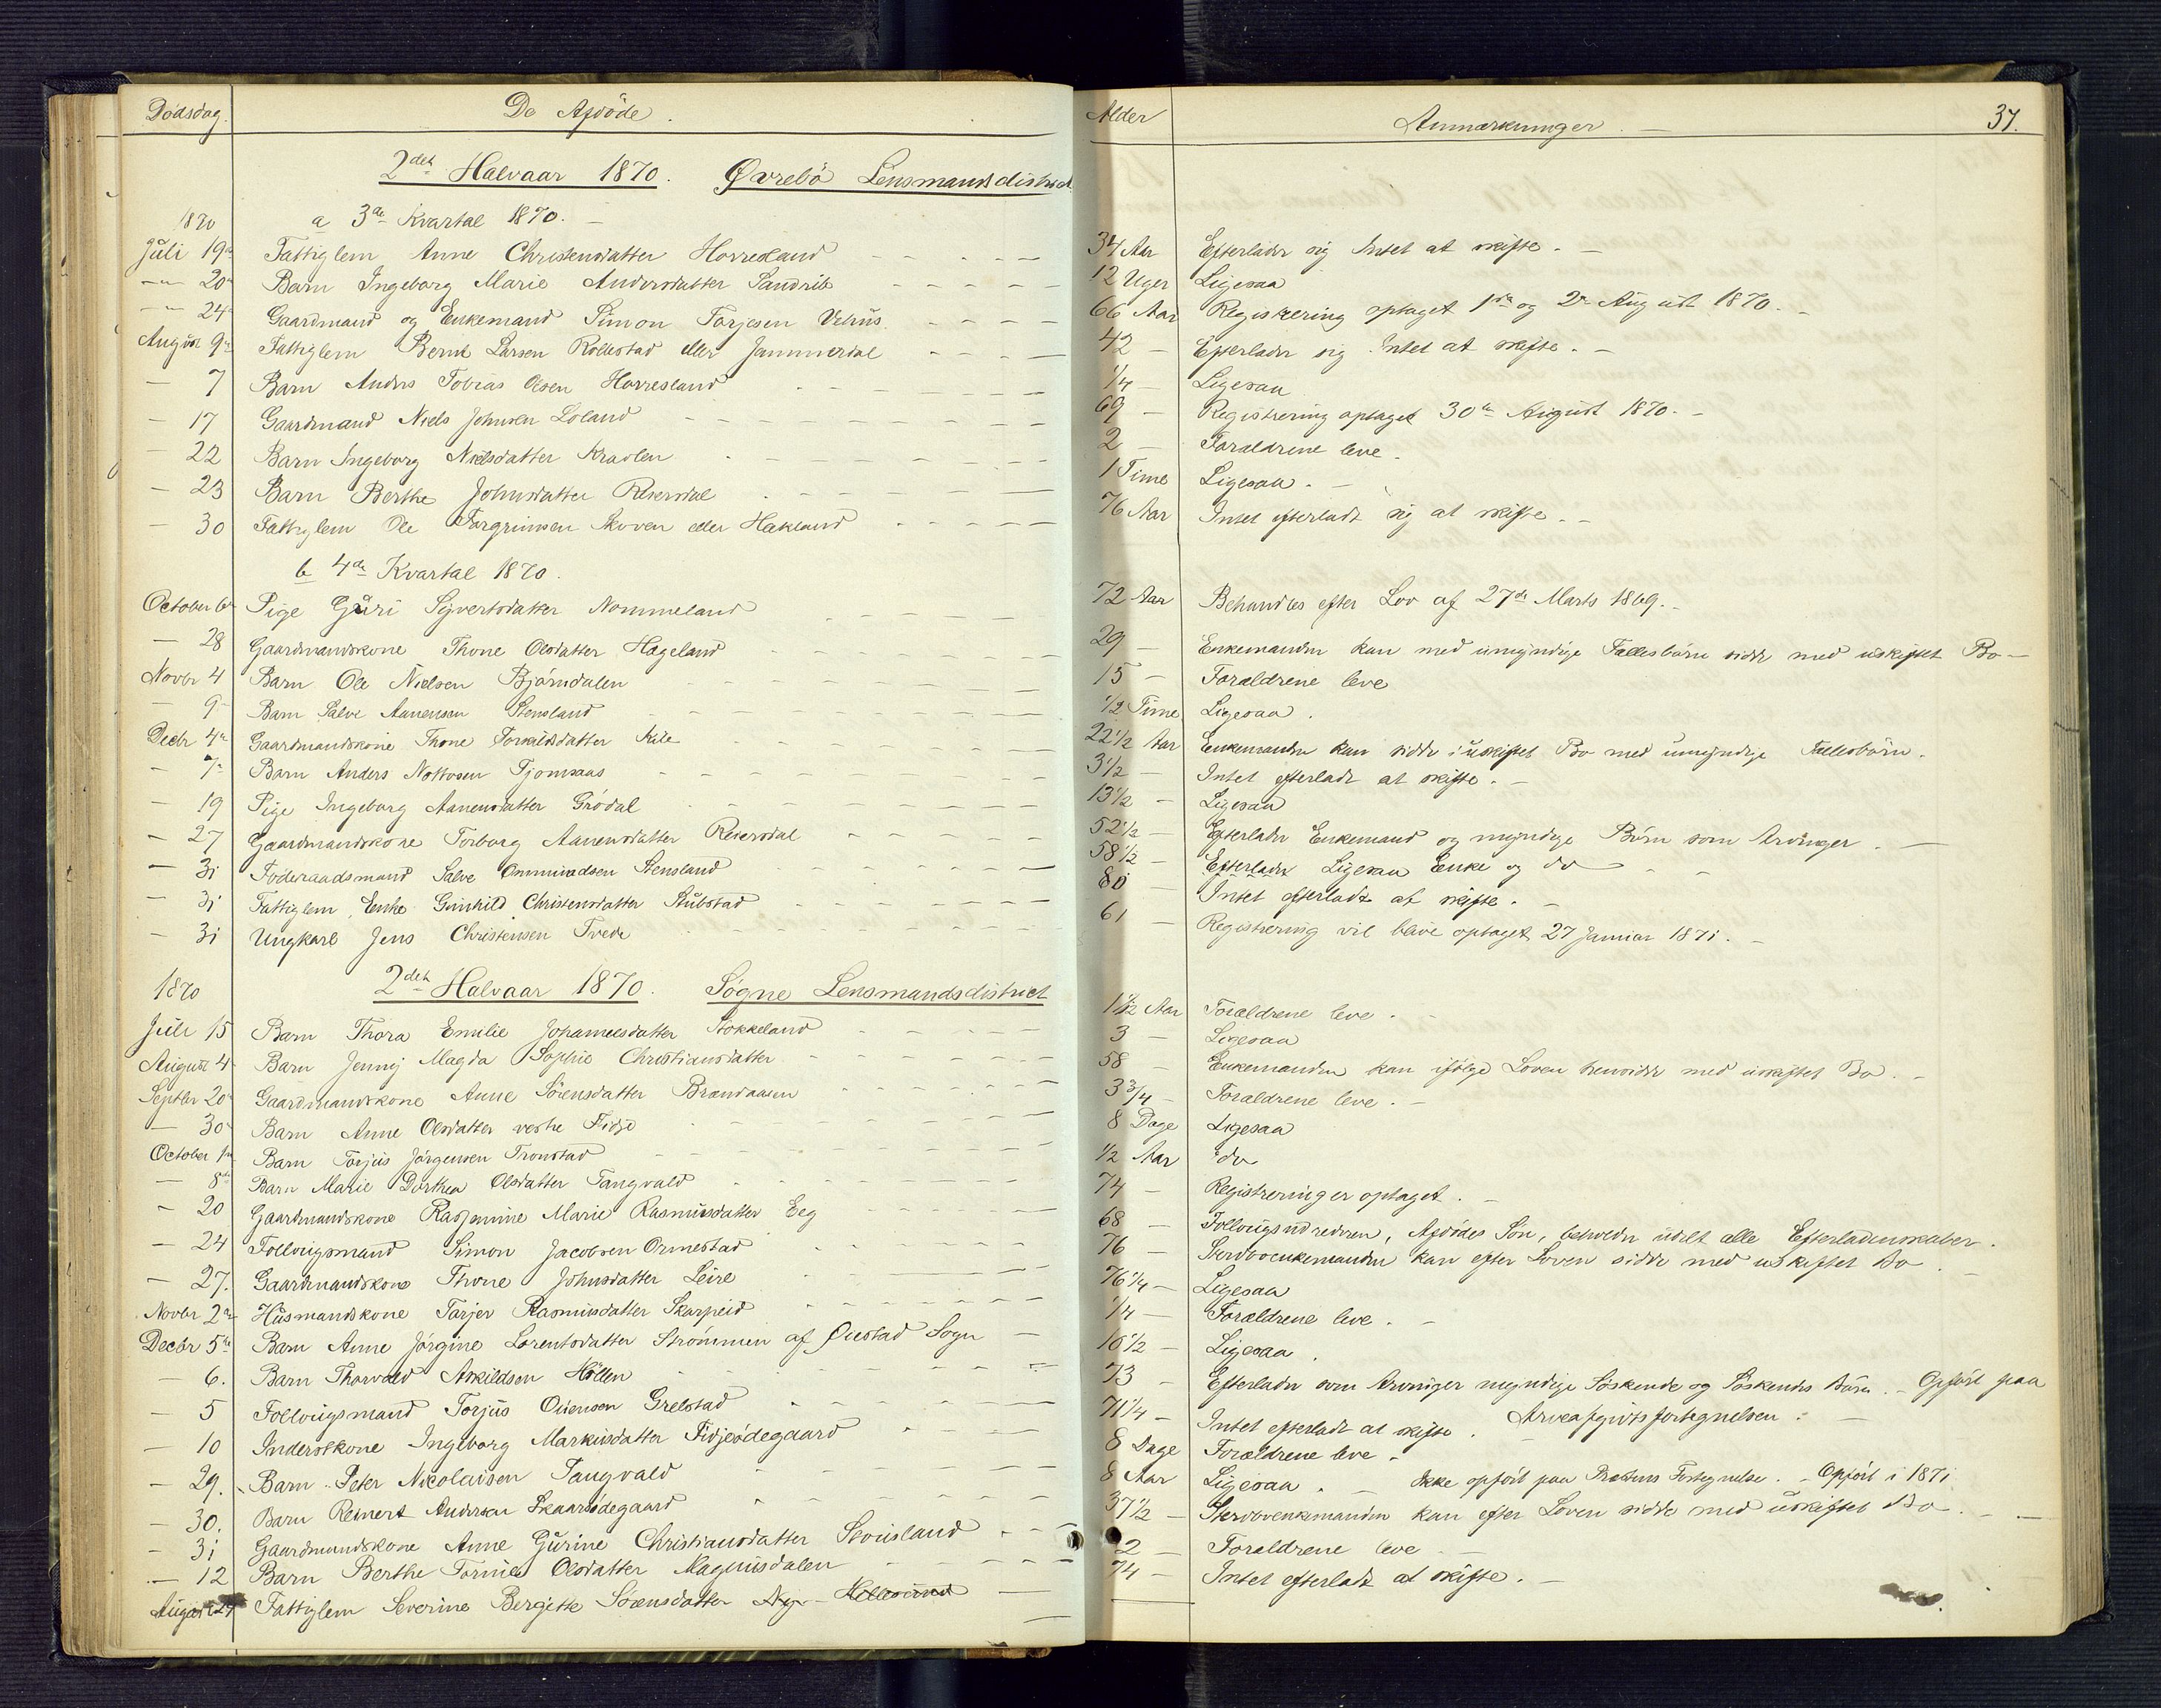 Dödsdag. De Afdöde. Alder Anmærkninger. 37.
2det Halvaar 1870. Øvrebö Lensmandsdistrict
1870 a 3de Kvartal 1870.
Juli 19de Fattiglem Anne Christensdatter Horresland 34 Aar Efterlader sig Intet at skifte.
20 Barn Ingeborg Marie Andersdatter Sandrib 12 Uger Ligesaa
24 Gaardmand og Enkemand Simon Torjesen Vehus 66 Aar Registrering optaget 1ste og 2den August 1870.
August 9de Fattiglem Bernt Larsen Rollestad eller Jammerdal 42 Efterlader sig Intet at skifte.
7 Barn Anders Tobias Olsen Horresland 1/4 Ligesaa
17 Gaardmand Niels Johnsen Loland 69 Registrering optaget 30te August 1870.
22 Barn Ingeborg Nielsdatter Kraolen 2 Forældrene leve.
23 Barn Berthe Johnsdatter Reiersdal 1 Time Ligesaa.
30 Fattiglem Ole Torgrimsen Skoven eller Hækland 76 Aar Intet efterladt sig at skifte.
b 4de Kvartal 1870.
October 6te Pige Guri Syvertsdatter Nommeland 72 Aar Behandles efter Lov af 27de Marts 1869.
28 Gaardmandskone Thone Olsdatter Hageland 29 Enkemanden kan med umyndige Fællesbörn sidde med uskiftet Bo
Novbr 4 Barn Ole Nielsen Björndalen 15 Forældrene leve
9 Barn Salve Aanensen Stensland 1/2 Time Ligesaa.
Decbr 4de Gaardmandskone Thone Torkildsdatter Kile 22 1/2 Aar Enkemanden kan sidde i uskiftet Bo med umyndige Fællesbörn.
7de Barn Anders Nottosen Tjomsaas 3 1/2 Intet efterladt at skifte.
19 Pige Ingeborg Aanensdatter Grödal 13 1/2 Ligesaa
27 Gaardmandskone Torborg Aanensdatter Reiersdal 52 1/2 Efterlader Enkemand og myndige Börn som Arvinger.
31 Föderaadsmand Salve Ommundsen Stensland 58 1/2 Efterlader Ligesaa Enke og do
31 Fattiglem, Enke Gunhild Christensdatter Stubstad 80 Intet efterladt at skifte.
31 Ungkarl Jens Christensen Tvede 61 Registrering vil blive optaget 27 Januar 1871.
1870 2det Halvaar 1870. Sögne Lensmandsdistrict
Juli 15 Barn Thora Emilie Johannesdatter Stokkeland Aar Forældrene leve.
August 4 Barn Jenny Magda Sophie Christiansdatter 3 Ligesaa
Septbr 20 Gaardmandskone Anne Sörensdatter Brandaasen 58 Enkemanden kan ifölge Loven hensidde med uskiftet Bo.
30 Barn Anne Olsdatter vestre Fidje 3 3/4 Forældrene leve.
October 1ste Barn Torjus Jörgensen Tronstad 8 Dage Ligesaa
8de Barn Marie Dorthea Olsdatter Tangvald 1/2 Aar do
20 Gaardmandskone Rasmine Marie Rasmusdatter Eeg 74 Registrering er optaget.
24 Follougsmand Simon Jacobsen Ormestad 68 Follougsudrederen, Afdödes Sön, beholder udelt alle Efterladenskaber.
27. Gaardmandskone Thone Johnsdatter Leire 76 Stervboenkemanden kan efter Loven sidde med uskiftet Bo
Novbr 2den Husmandskone Tarjer Rasmusdatter Skarpeid 76 1/4 Ligesaa
Decbr 5te Barn Anne Jörgine Lorentsdatter Strömmen af Oddestad Sogn 1/4 Forældrene leve.
6. Barn Thorvald Askildsen Höllen 10 1/2 Ligesaa.
5 Follougsmand Torjus Oddensen Grelstad 73 Efterlader som Arvinger myndige Söskende og Söskendes Börn. Opfört paa
Arveafgiftsfortegnelsen.
10 Inderstkone Ingeborg Markusdatter Fidjeödegaard 71 1/4 Intet efterladt at skifte.
29. Barn Peter Nicolaisen Tangvald 8 Dage Forældrene leve.
30. Barn Reinert Andersen Skaarödegaard 8 Aar Ligesaa. Ikke opfört paa Præstens Fortegnelse. Opfört i 1871
31 Gaardmandskone Anne Gurine Christiansdatter Stousland 37 1/2 Stervboenkemanden kan efter Loven sidde med uskiftet Bo
12 Barn Berthe Tomine Olsdatter Magnusdalen 2 Forældrene leve
August 24 Fattiglem Severine Bergitte Sörensdatter Ny Hellesund 74 Intet efterladt at skifte.